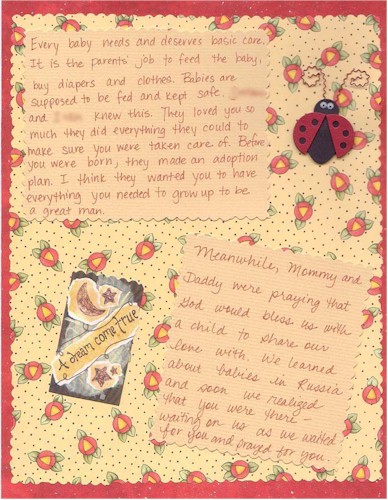 Every baby needs and deserves basic care.
It is the parents' job to feed the baby,
buy diapers and clothes. Babies are
supposed to be fed and kept safe.
and knew this. They loved you so
much they did everything they could to
make sure you were taken care of. Before
you were born, they made an adoption
plan. I think they wanted you to have
everything you needed to grow up to be
a great man.
Meanwhile, Mommy and
Daddy were praying that
God would bless us with
a child to share our
love with. We learned
about babies in Russia
and soon we realized
that you were there -
waiting on us as we waited
for you and prayed for you.
A dream come true